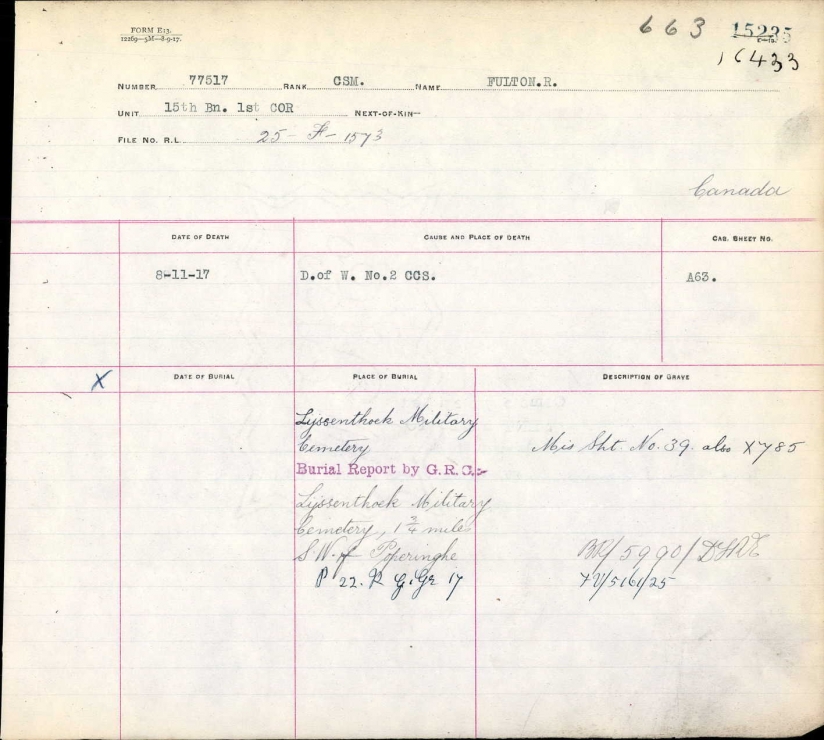 FORM E13.
12269—5M—8-9-17.
663 15235
16433
NUMBER 77517 RANK CSM. NAME FULTON.R.
UNIT 15th Bn. 1st COR NEXT-OF-KIN—
FILE NO. R.L. 25 - F - 1573
Canada
DATE OF DEATH CAUSE AND PLACE OF DEATH CAS. SHEET NO.
8-11-17 D.of W. No.2 CCS. A63.
X DATE OF BURIAL PLACE OF BURIAL DESCRIPTION OF GRAVE
Lijssenthoek Military
Cemetery Mis Sht. No. 39. also X 785
Burial Report by G.R.C:-
Lijssenthoek Military
Cemetery, 1 3/4 miles
S.W. of Poperinghe BR/5990/
P 22. R G. Gr 17 /5161/25